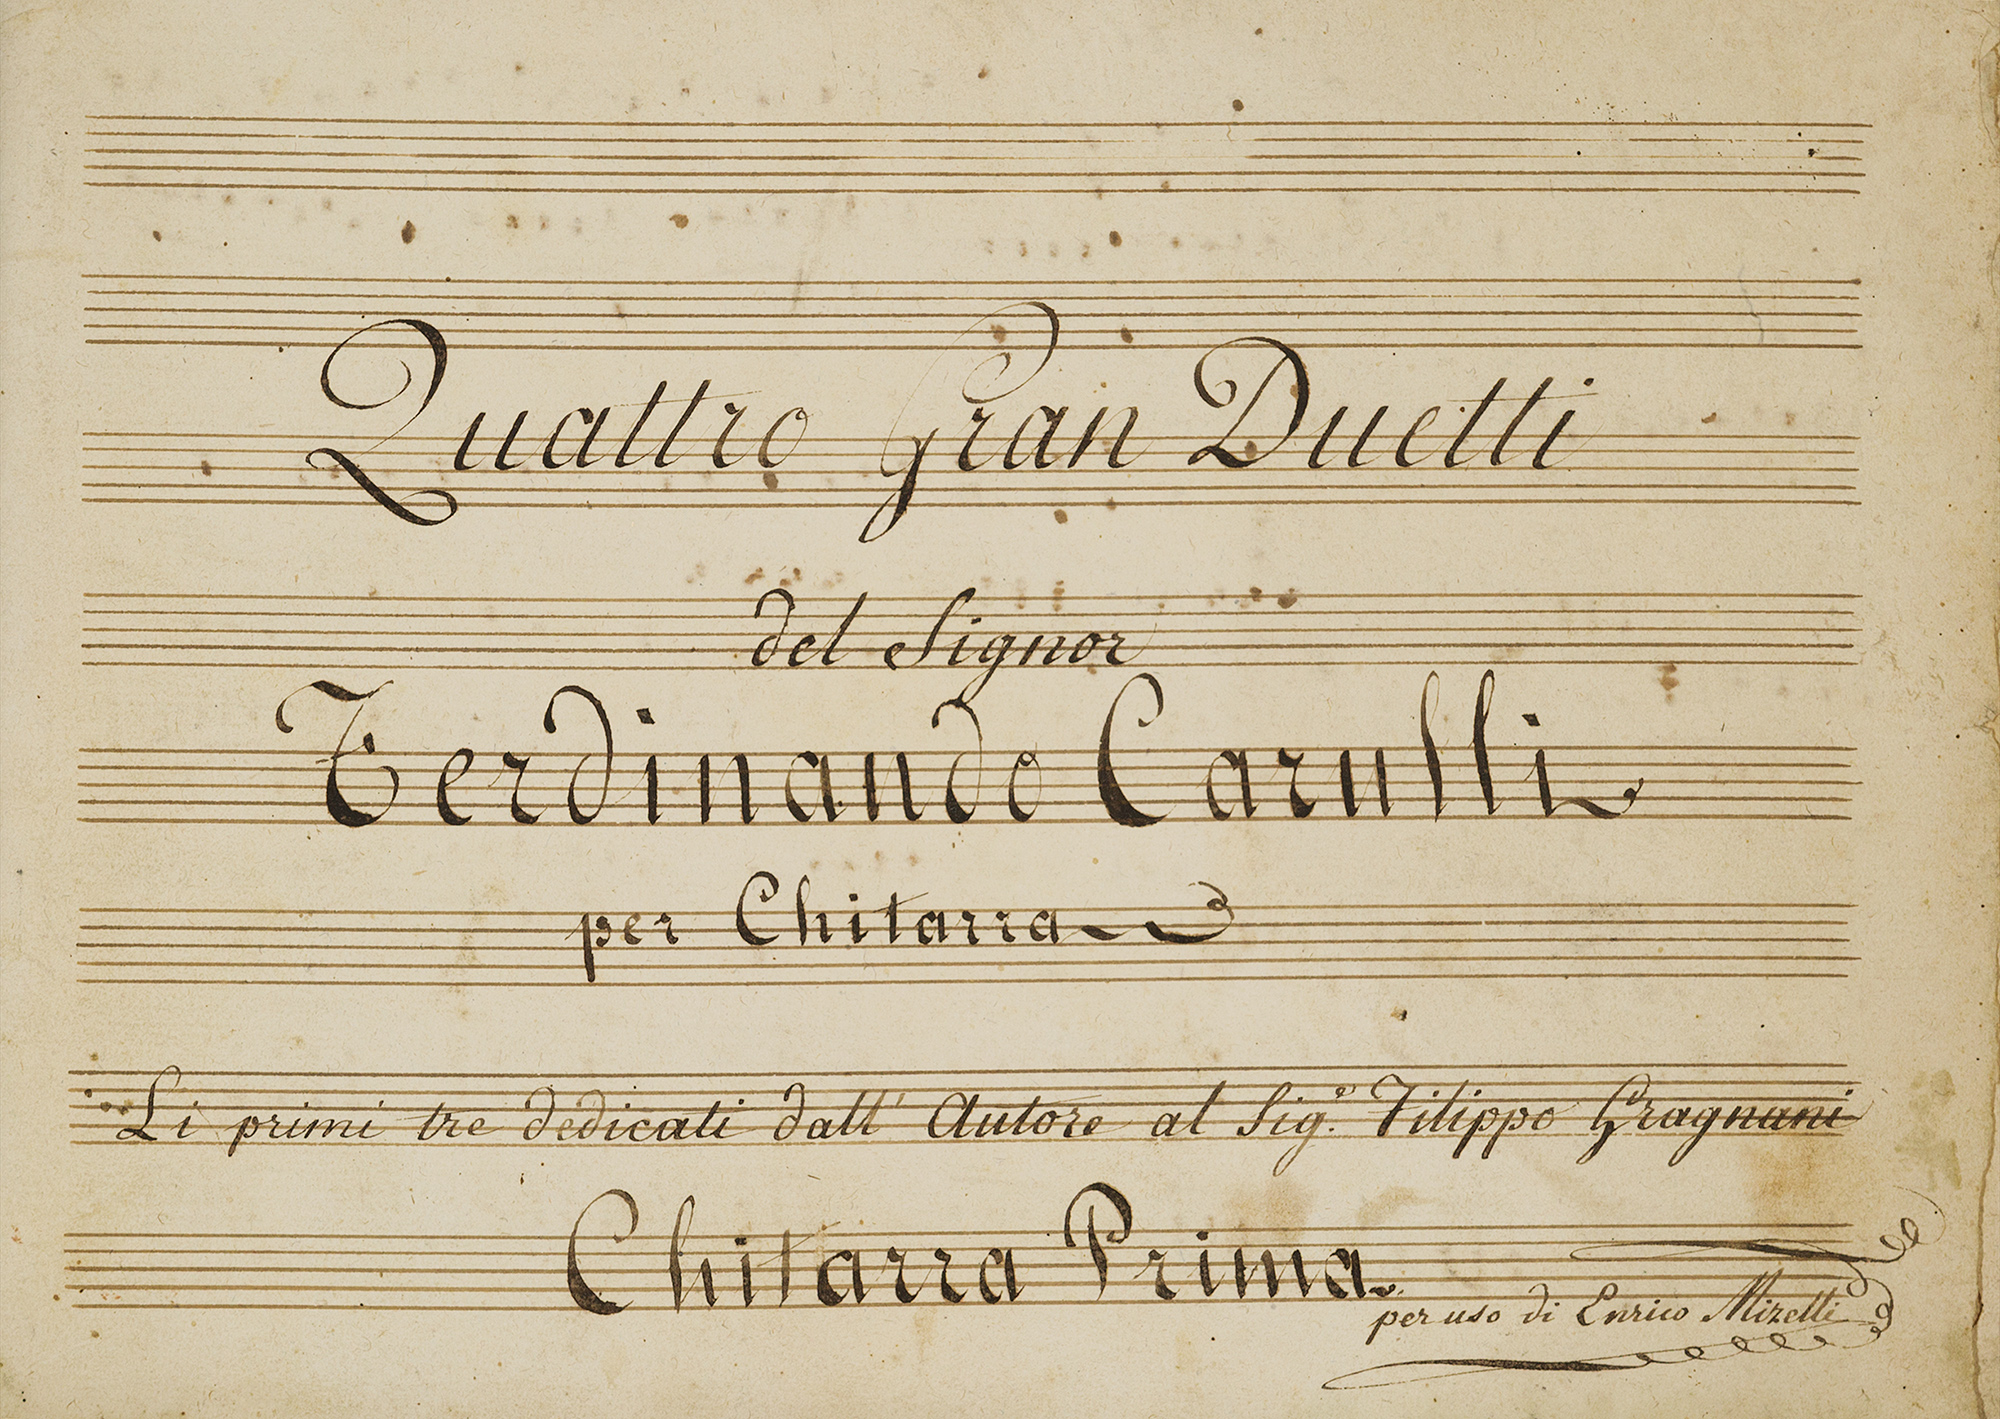 Quattro Gran Duetti
del Signor
Ferdinando Carulli
per Chitarra
Li primi tre dedicati dall' Autore al Sig.e Filippo Gragnani
Chitarra Prima
per uso di Enrico Mizelli